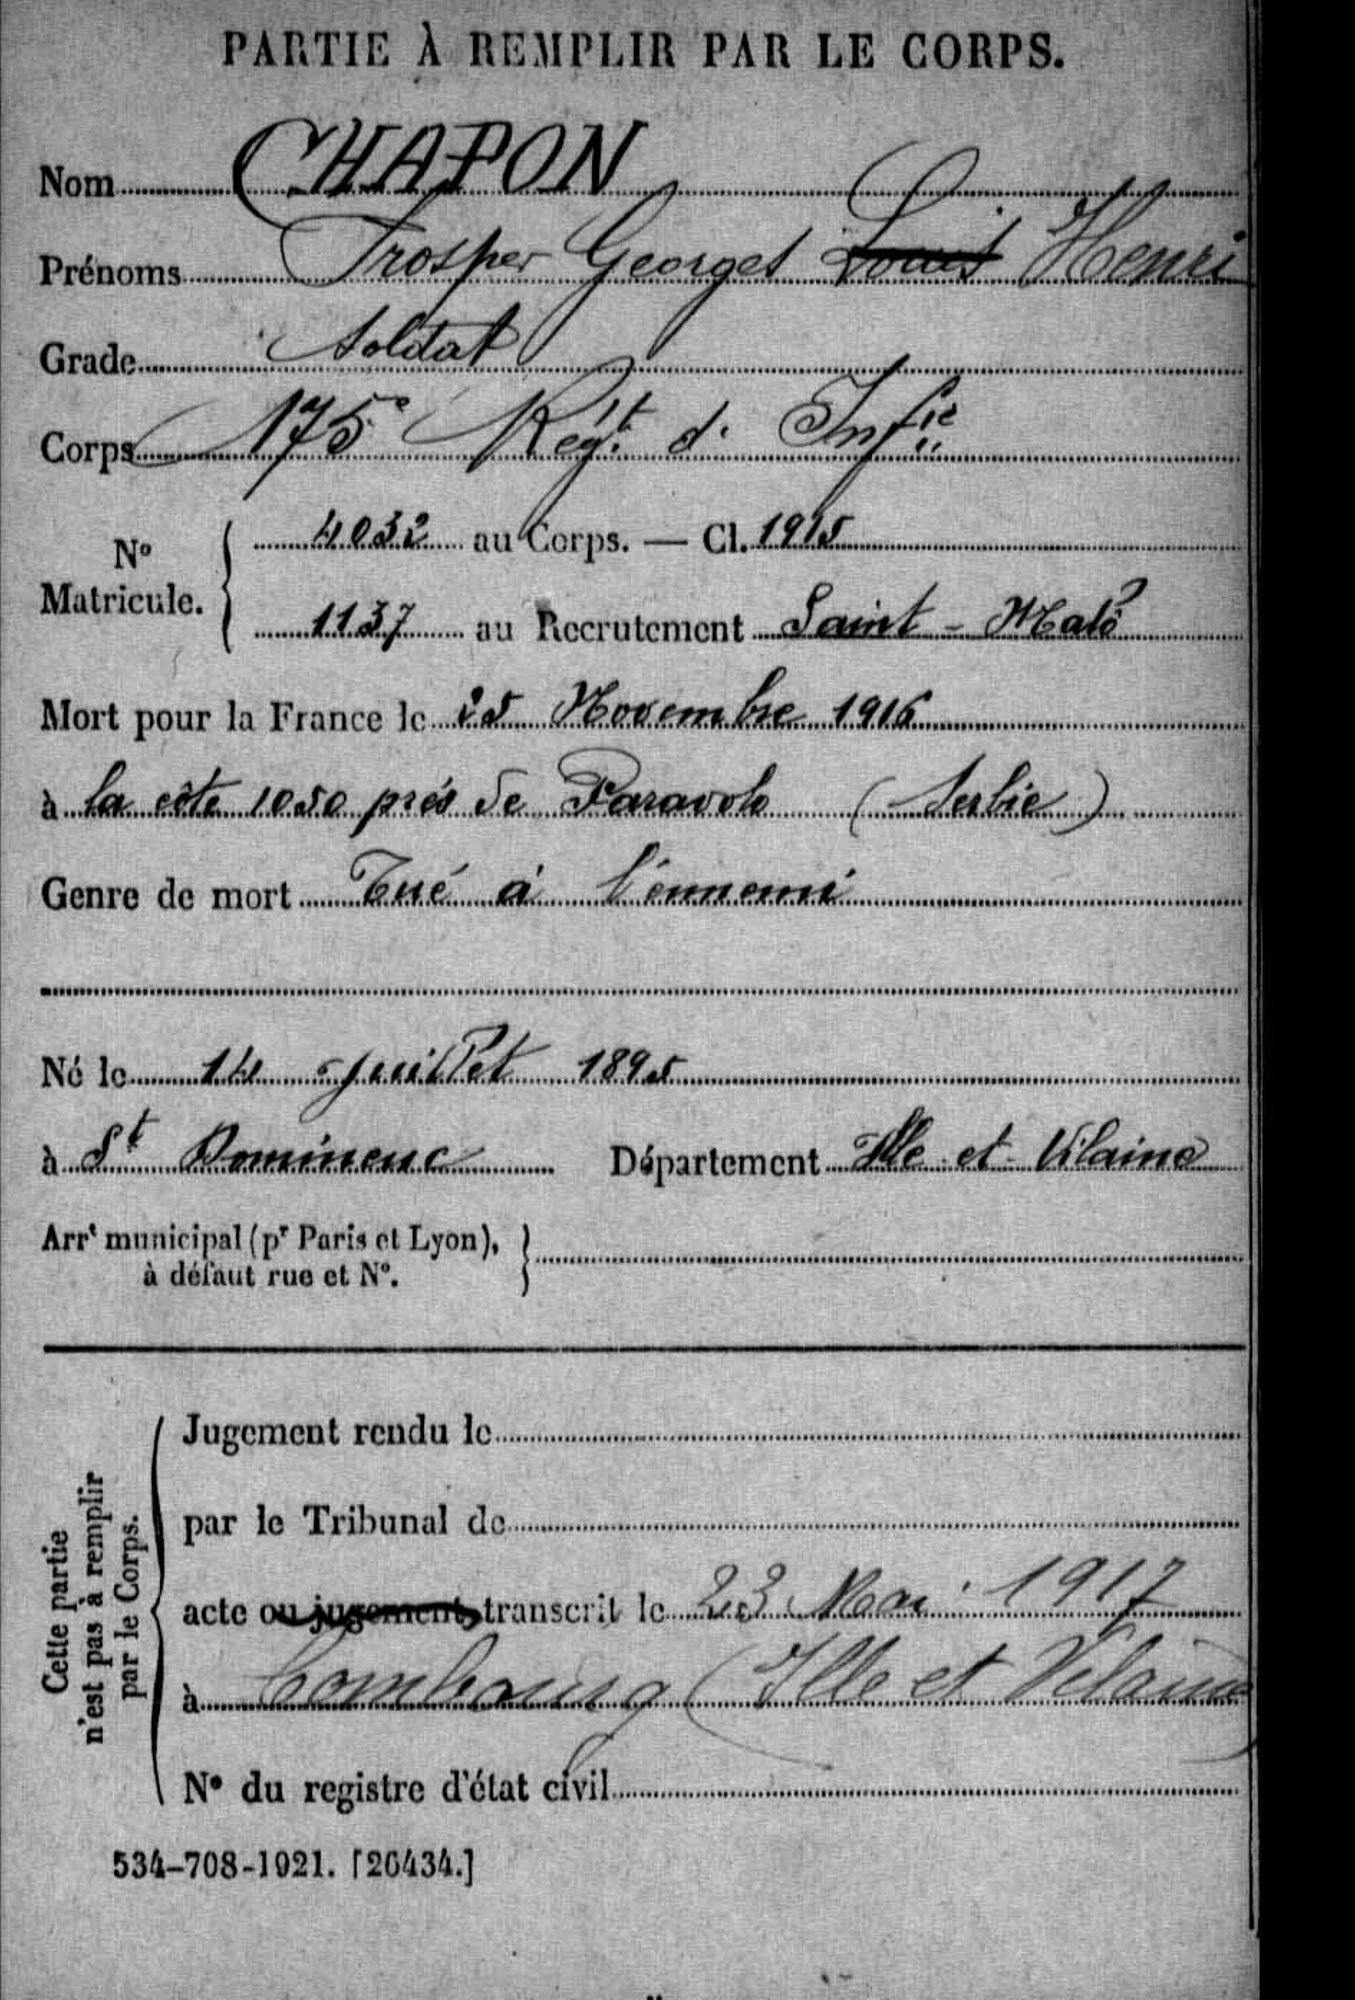 PARTIE À REMPLIR PAR LE CORPS.
Nom CHAPON
Prénoms Prosper Georges Louis Henri
Grade Soldat
Corps 175e Régt. d' Infie
N° Matricule. 4032 au Corps. — Cl. 1915
1137 au Recrutement Saint - Malo
Mort pour la France le 25 Novembre 1916
à la côte 1050 près de Paravolo (Serbie)
Genre de mort Tué à l'ennemi
Né le 14 Juillet 1895
à St Domineuc Département Ille et Vilaine
Arrt municipal (pr Paris et Lyon),
à défaut rue et N°.
Cette partie
n'est pas à remplir
par le Corps.
Jugement rendu le
par le Tribunal de
acte ou jugement transcrit le 23 Mai 1917
à Combourg (Ille et Vilaine)
N° du registre d'état civil
534-708-1921. [26434.]